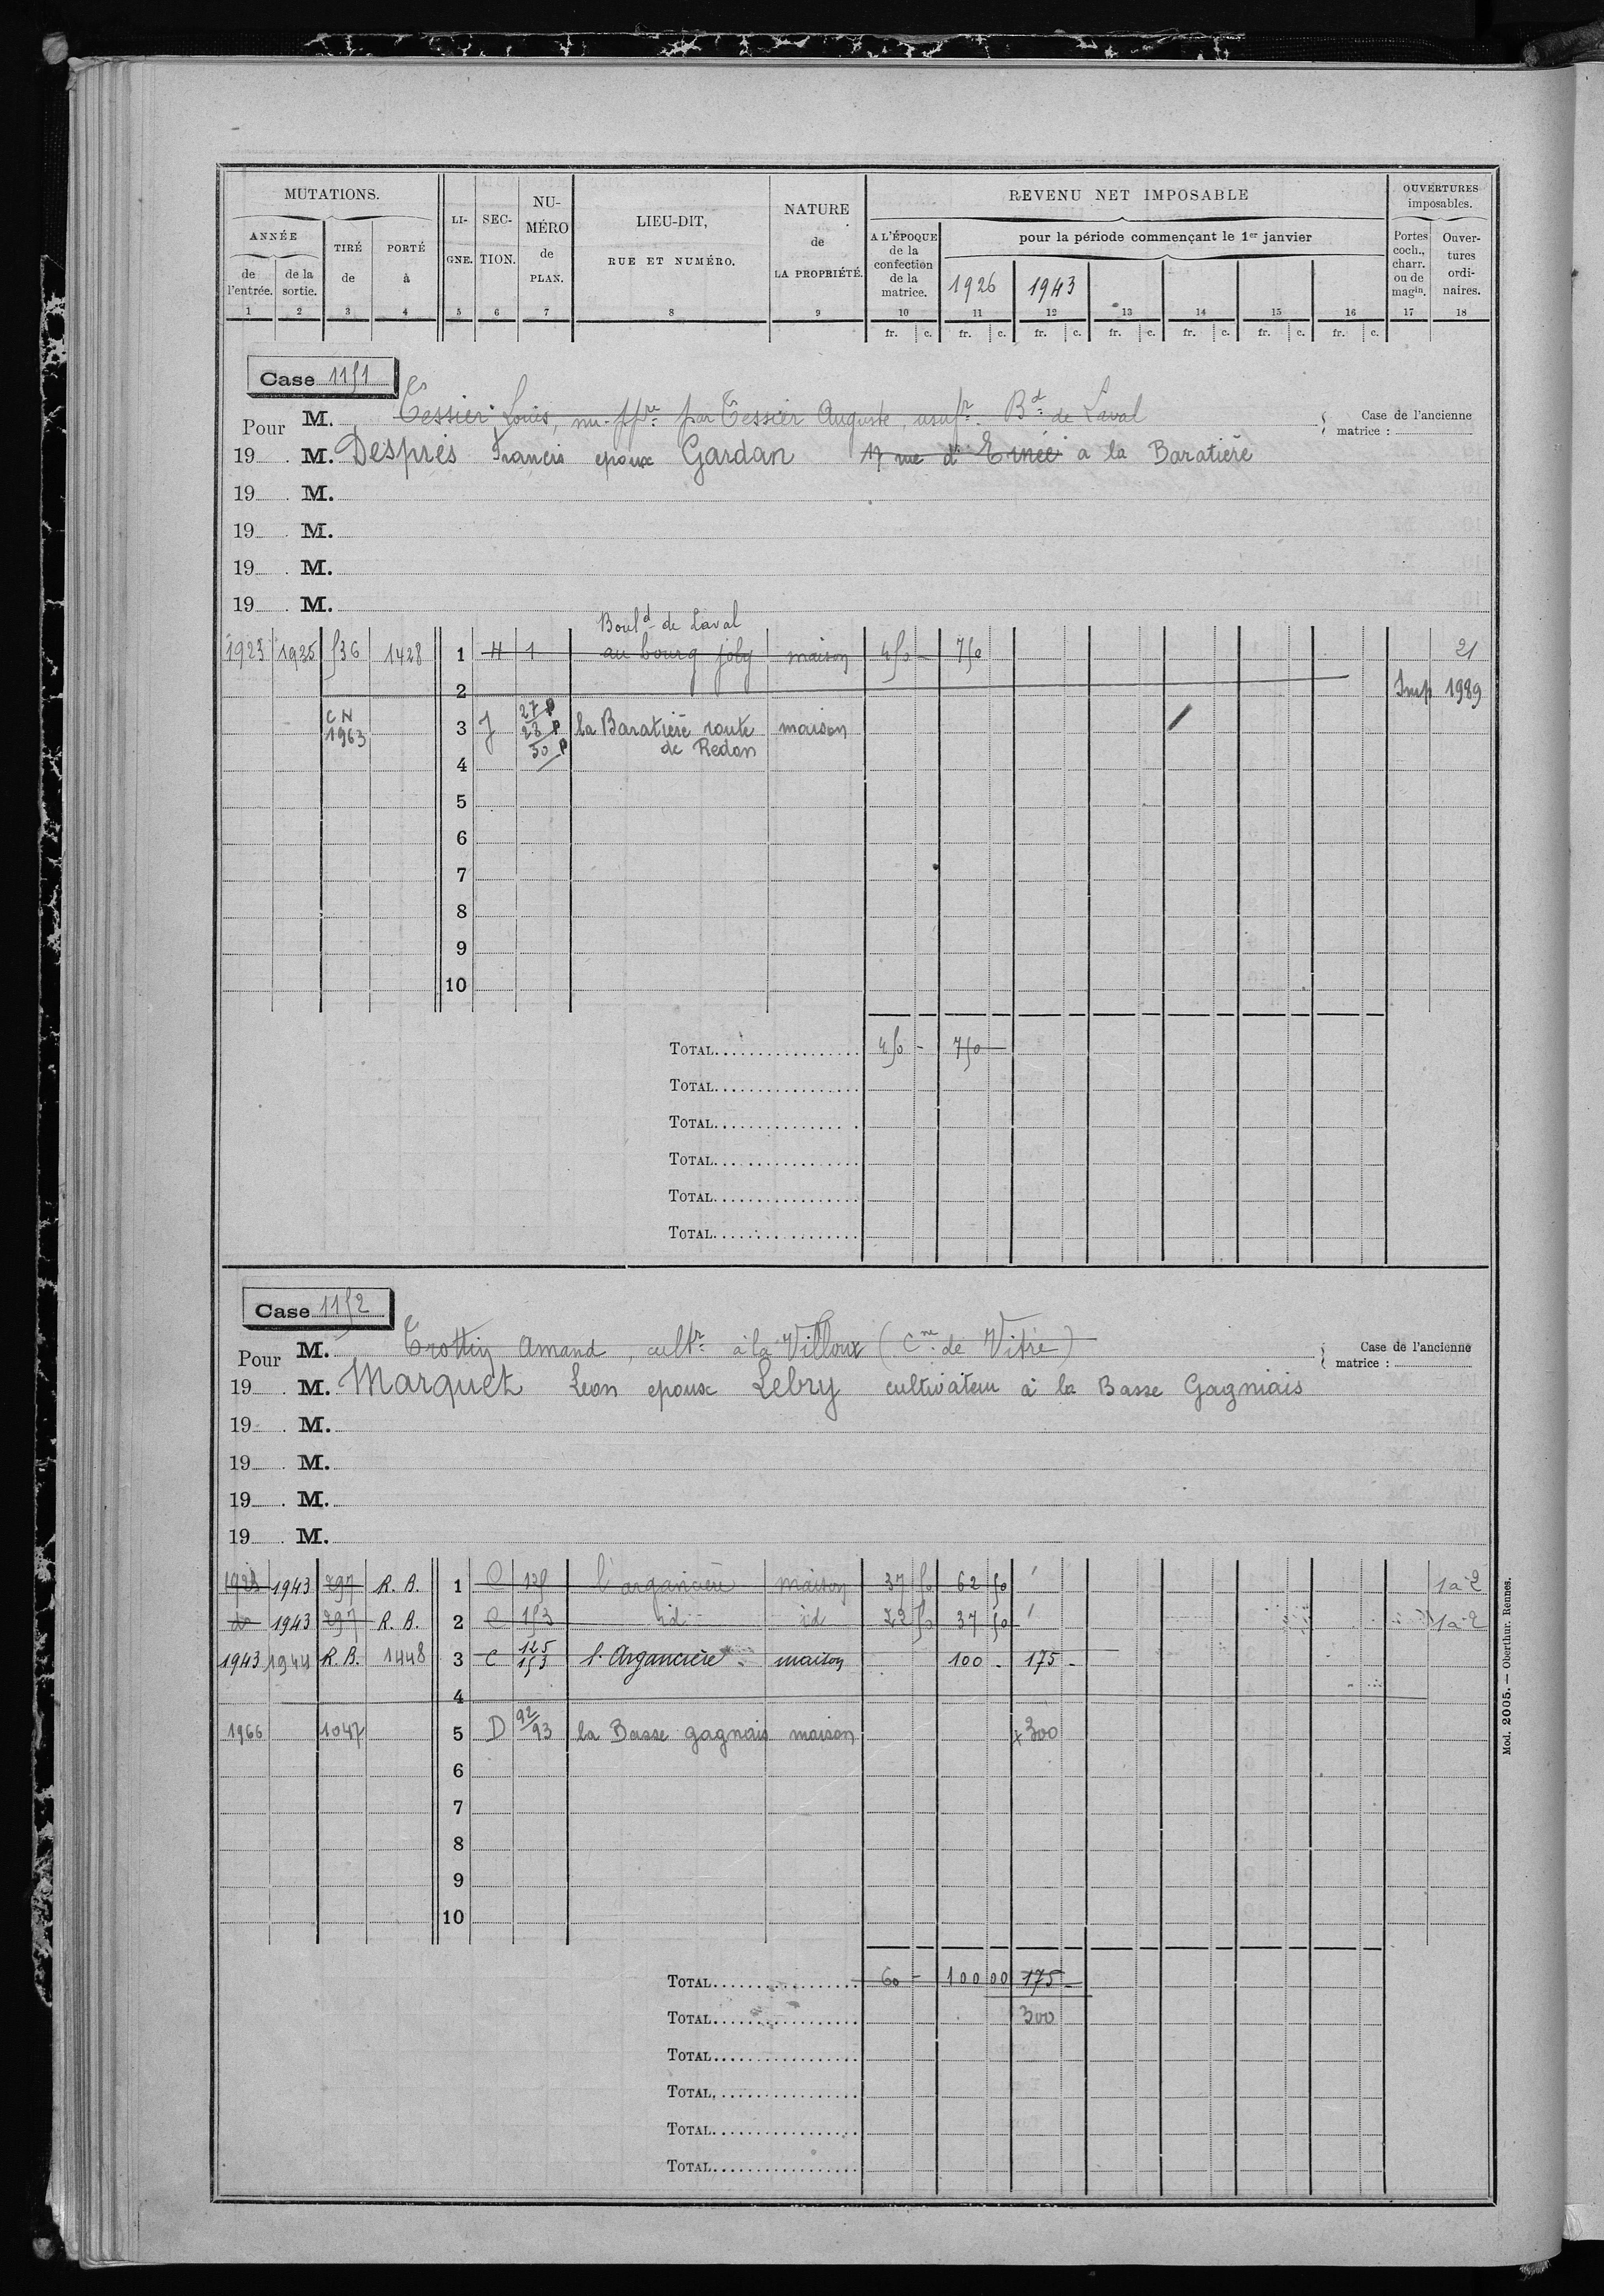 MUTATIONS.
ANNÉE
de l'entrée.
de la sortie.
TIRÉ de
PORTÉ à
LIGNE.
SECTION.
NUMÉRO de PLAN.
LIEU-DIT, RUE ET NUMÉRO.
NATURE de LA PROPRIÉTÉ.
REVENU NET IMPOSABLE
A L'ÉPOQUE de la confection de la matrice.
pour la période commençant le 1er janvier
1926 1943
OUVERTURES imposables.
Portes coch., charr. ou de magin.
Ouvertures ordinaires.
1 2 3 4 5 6 7 8 9 10 11 12 13 14 15 16 17 18
fr. c. fr. c. fr. c. fr. c. fr. c. fr. c. fr. c.
Case 1151
Pour M. Tessier Louis, nu-ppre par Tessier Auguste, usufr. Bd de Laval
Case de l'ancienne matrice :
19 . M. Després Francis epoux Gardan 17 rue d'Ernée a la Baratière
19 . M.
19 . M.
19 . M.
19 . M.
Bould de Laval
1923 1925 536 1428 1 H 1 au bourg joly maison 450 - 750 21
2 Imp 1989
CN 1963 3 J 27 p 28 p 30 p la Baratière route de Redon maison
4
5
6
7
8
9
10
TOTAL 450 - 750
TOTAL
TOTAL
TOTAL
TOTAL
TOTAL
Case 1152
Pour M. Trottin Amand, cultr à la Villoux (Cne de Vitré)
Case de l'ancienne matrice :
19 . M. Marquet Leon epoux Lebry cultivateur à la Basse Gagniais
19 . M.
19 . M.
19 . M.
19 . M.
1923 1943 297 R.B. 1 C 125 l'argancière maison 37 50 62 50 1a2
do 1943 297 R.B. 2 C 153 id id 22 50 37 50 1a2
1943 1944 R.B. 1448 3 C 125 153 l'Argancière maison 100 - 175 -
4
1966 1047 5 D 92/93 la Basse gagnais maison x 300
6
7
8
9
10
TOTAL 60 - 100 00 175 -
TOTAL 300
TOTAL
TOTAL
TOTAL
TOTAL
Mod. 2005. — Oberthur. Rennes.